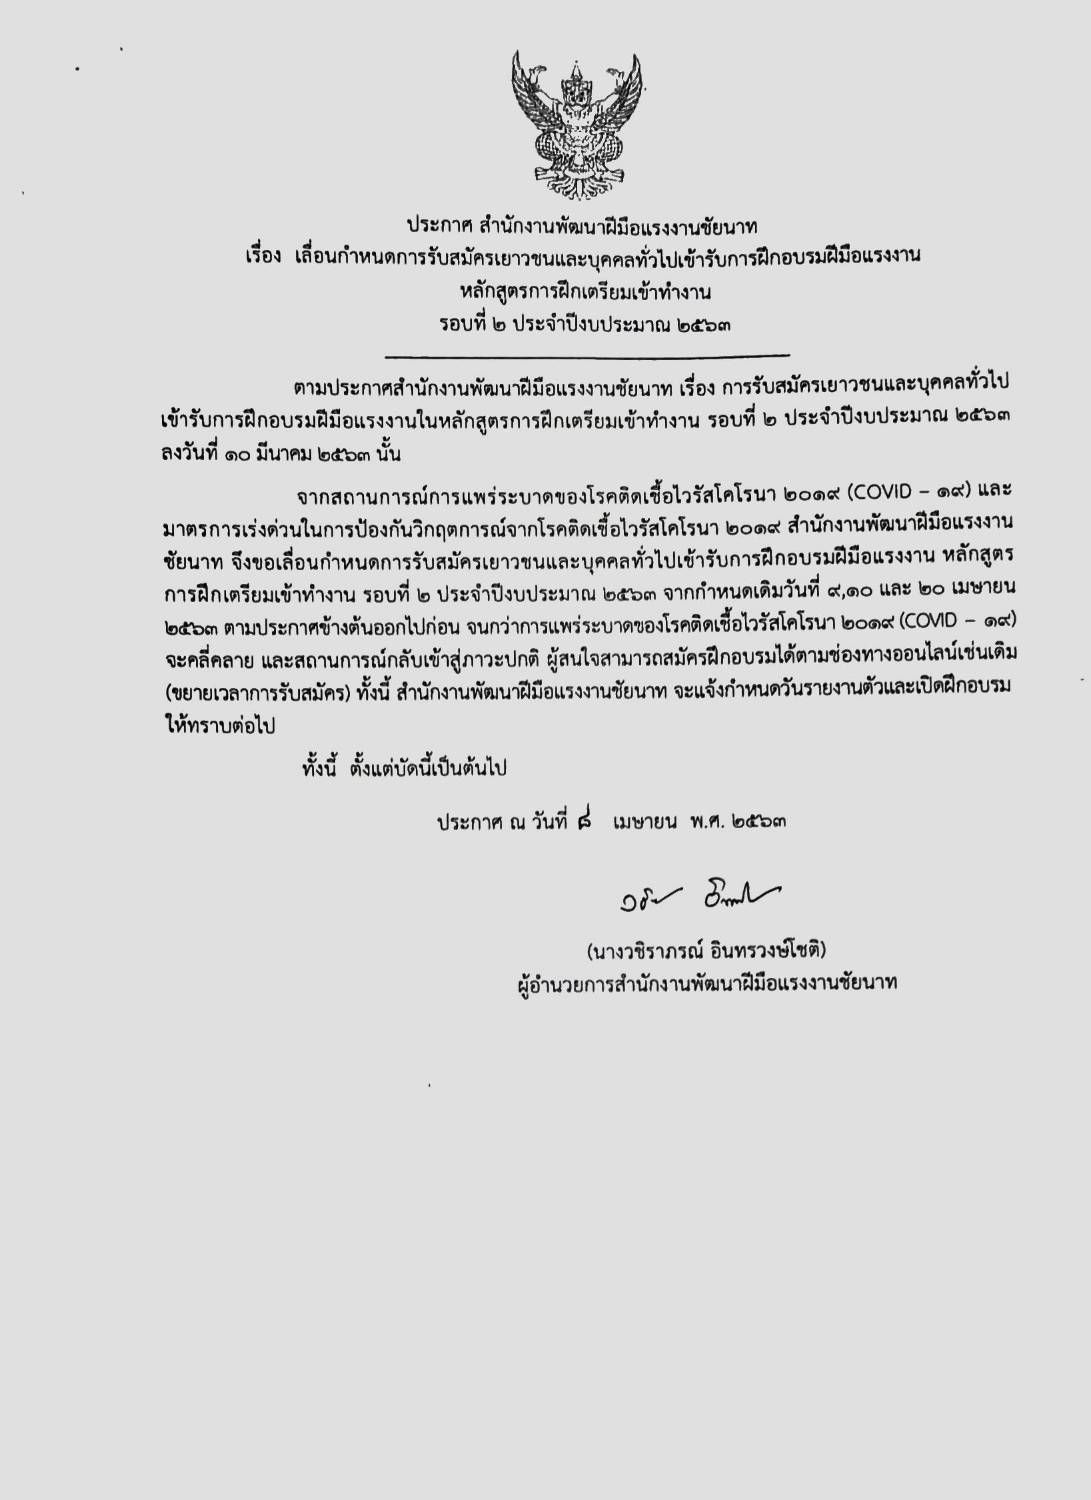 ประกาศ สำนักงานพัฒนาฝีมือแรงงานชัยนาท
เรื่อง เลื่อนกำหนดการรับสมัครเยาวชนและบุคคลทั่วไปเข้ารับการฝึกอบรมฝีมือแรงงาน
หลักสูตรการฝึกเตรียมเข้าทำงาน
รอบที่ ๒ ประจำปีงบประมาณ ๒๕๖๓
ตามประกาศสำนักงานพัฒนาฝีมือแรงงานชัยนาท เรื่อง การรับสมัครเยาวชนและบุคคลทั่วไป
เข้ารับการฝึกอบรมฝีมือแรงงานในหลักสูตรการฝึกเตรียมเข้าทำงาน รอบที่ ๒ ประจำปีงบประมาณ ๒๕๖๓
ลงวันที่ ๑๐ มีนาคม ๒๕๖๓ นั้น
จากสถานการณ์การแพร่ระบาดของโรคติดเชื้อไวรัสโคโรนา ๒๐๑๙ (COVID – ๑๙) และ
มาตรการเร่งด่วนในการป้องกันวิกฤตการณ์จากโรคติดเชื้อไวรัสโคโรนา ๒๐๑๙ สำนักงานพัฒนาฝีมือแรงงาน
ชัยนาท จึงขอเลื่อนกำหนดการรับสมัครเยาวชนและบุคคลทั่วไปเข้ารับการฝึกอบรมฝีมือแรงงาน หลักสูตร
การฝึกเตรียมเข้าทำงาน รอบที่ ๒ ประจำปีงบประมาณ ๒๕๖๓ จากกำหนดเดิมวันที่ ๙,๑๐ และ ๒๐ เมษายน
๒๕๖๓ ตามประกาศข้างต้นออกไปก่อน จนกว่าการแพร่ระบาดของโรคติดเชื้อไวรัสโคโรนา ๒๐๑๙ (COVID – ๑๙)
จะคลี่คลาย และสถานการณ์กลับเข้าสู่ภาวะปกติ ผู้สนใจสามารถสมัครฝึกอบรมได้ตามช่องทางออนไลน์เช่นเดิม
(ขยายเวลาการรับสมัคร) ทั้งนี้ สำนักงานพัฒนาฝีมือแรงงานชัยนาท จะแจ้งกำหนดวันรายงานตัวและเปิดฝึกอบรม
ให้ทราบต่อไป
ทั้งนี้ ตั้งแต่บัดนี้เป็นต้นไป
ประกาศ ณ วันที่ ๘ เมษายน พ.ศ. ๒๕๖๓
(นางวชิราภรณ์ อินทรวงษ์โชติ)
ผู้อำนวยการสำนักงานพัฒนาฝีมือแรงงานชัยนาท